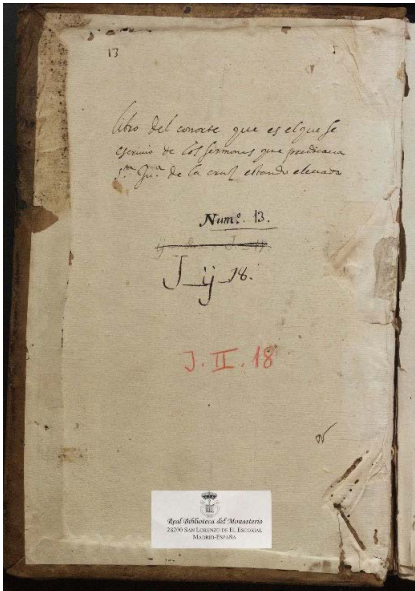 13
libro del conorte que es el que se
escriuio de los sermones que predicaua
s.ta Ju.a de la cruz estando eleuada
Num.o 13.
J ij 18.
J. II. 18
Real Biblioteca del Monasterio
28200 San Lorenzo de El Escorial
Madrid-España